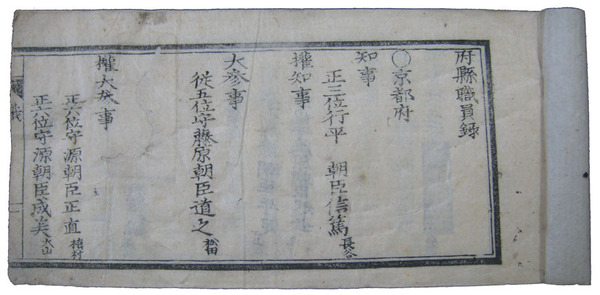 府縣職員録
〇京都府
知事
正三位行平 朝臣信篤 長谷
權知事
大参事
從五位守藤原朝臣道之 松田
權大参事
正六位守源朝臣正直 槇村
正六位守源朝臣成美